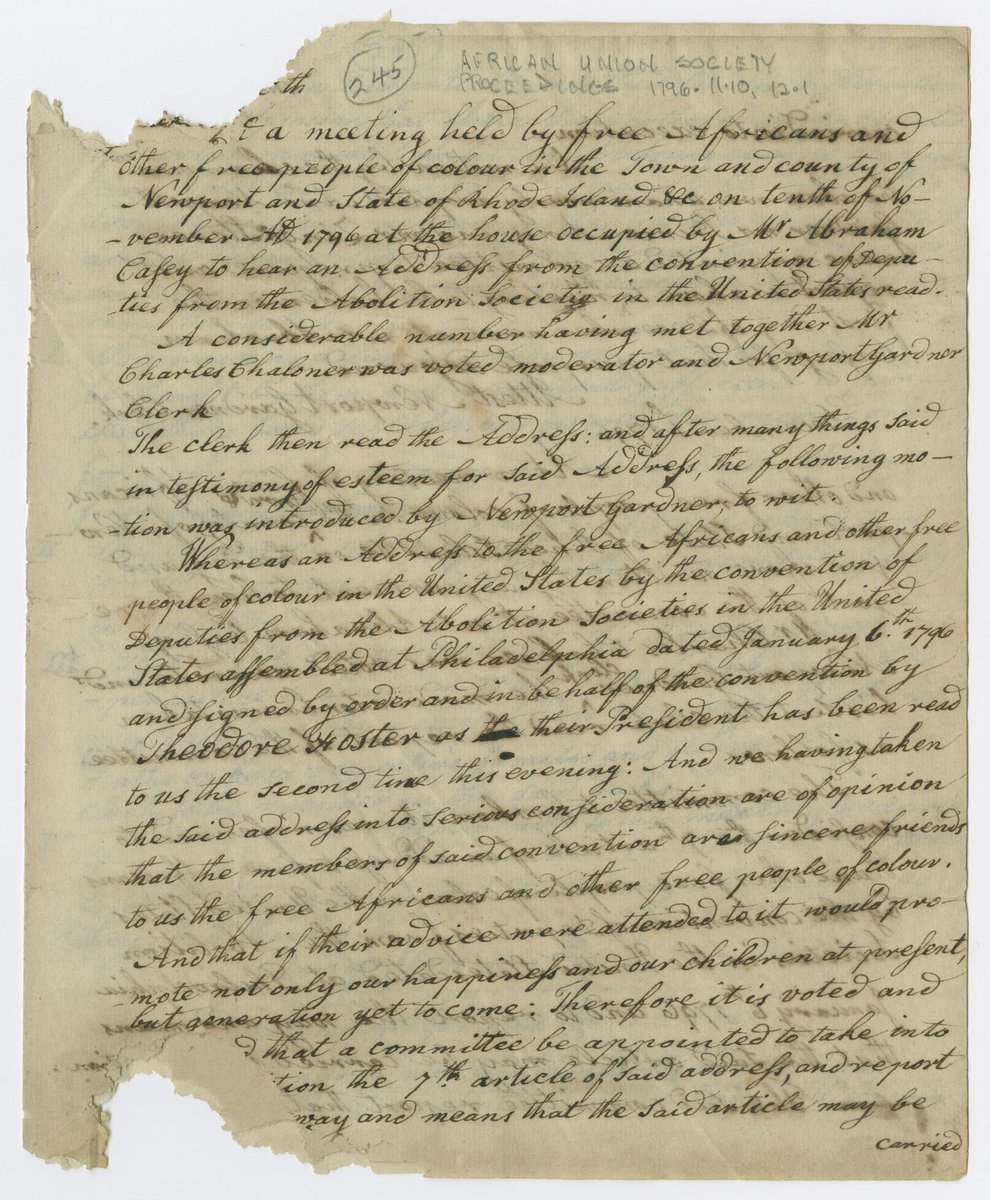 245
AFRICAN UNION SOCIETY
PROCEEDINGS 1796. 11.10, 12.1
th
a meeting held by free Africans and
other free people of colour in the Town and county of
Newport and State of Rhode Island &c on tenth of No-
-vember AD 1796 at the house occupied by Mr Abraham
Casey to hear an Address from the convention of Depu-
-ties from the Abolition Society in the United States read.
A considerable number having met together Mr
Charles Chaloner was voted moderator and Newport Gardner
Clerk
The clerk then read the Address: and after many things said
in testimony of esteem for said Address, the following mo-
-tion was introduced by Newport Gardner, to wit:
Whereas an Address to the free Africans and other free
people of colour in the United States by the convention of
Deputies from the Abolition Societies in the United
States assembled at Philadelphia dated January 6.th 1796
and signed by order and in behalf of the convention by
Theodore Foster as their President has been read
to us the second time this evening: And we having taken
the said address into serious consideration are of opinion
that the members of said convention are sincere friends
to us the free Africans and other free people of colour.
And that if their advice were attended to it would pro-
-mote not only our happiness and our children at present,
but generation yet to come: Therefore it is voted and
d that a committee be appointed to take into
tion the 7th article of said address, and report
way and means that the said article may be
carried